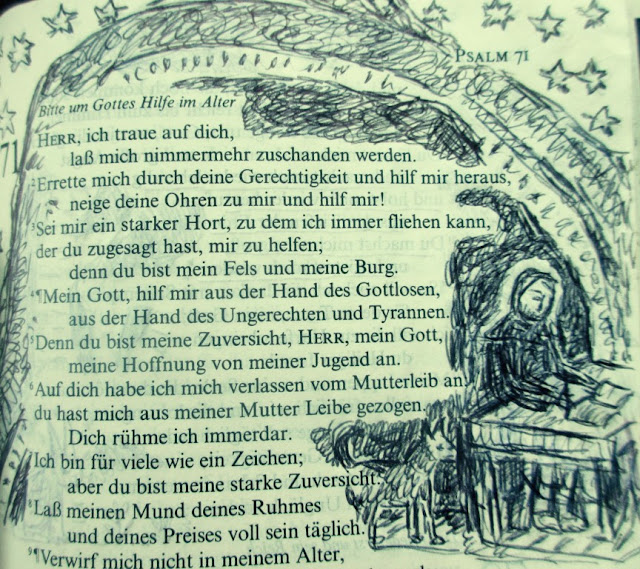 PSALM 71
71
Bitte um Gottes Hilfe im Alter
HERR, ich traue auf dich,
laß mich nimmermehr zuschanden werden.
²Errette mich durch deine Gerechtigkeit und hilf mir heraus,
neige deine Ohren zu mir und hilf mir!
³Sei mir ein starker Hort, zu dem ich immer fliehen kann,
der du zugesagt hast, mir zu helfen;
denn du bist mein Fels und meine Burg.
⁴¶Mein Gott, hilf mir aus der Hand des Gottlosen,
aus der Hand des Ungerechten und Tyrannen.
⁵Denn du bist meine Zuversicht, HERR, mein Gott,
meine Hoffnung von meiner Jugend an.
⁶Auf dich habe ich mich verlassen vom Mutterleib an;
du hast mich aus meiner Mutter Leibe gezogen.
Dich rühme ich immerdar.
⁷Ich bin für viele wie ein Zeichen;
aber du bist meine starke Zuversicht.
⁸Laß meinen Mund deines Ruhmes
und deines Preises voll sein täglich.
⁹¶Verwirf mich nicht in meinem Alter,